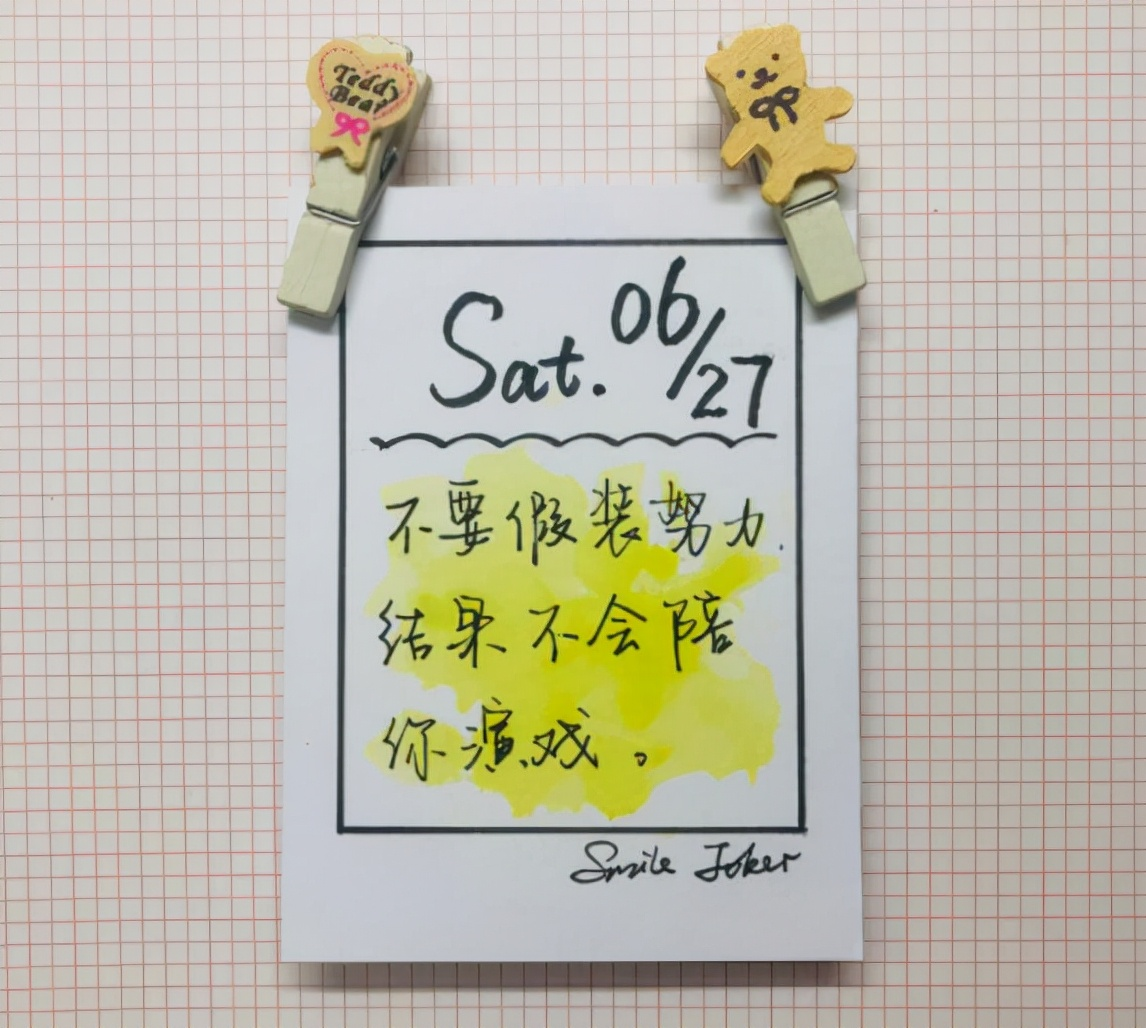 Teddy
Bear
Sat. 06/27
不要假装努力.
结果不会陪
你演戏。
Smile Joker